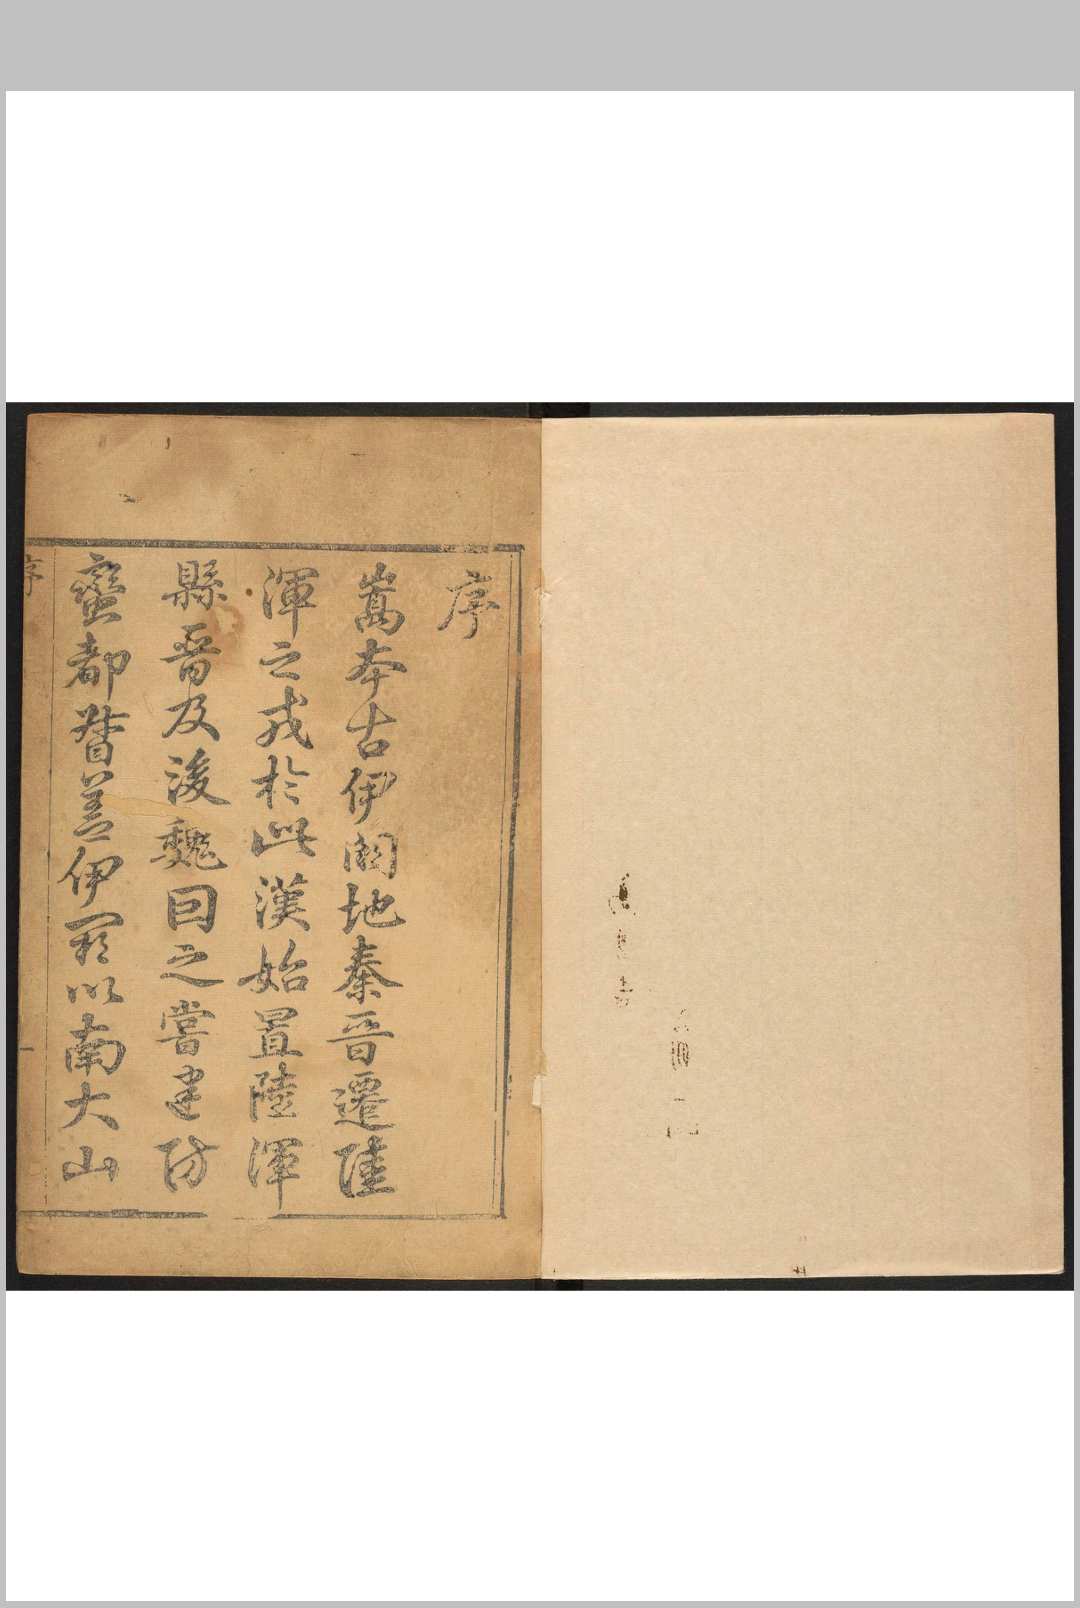 序
嵩本古伊闕地秦晉遷陸
渾之戎於此漢始置陸渾
縣晉及後魏因之嘗建防
蠻都督盖伊闕以南大山
序
一